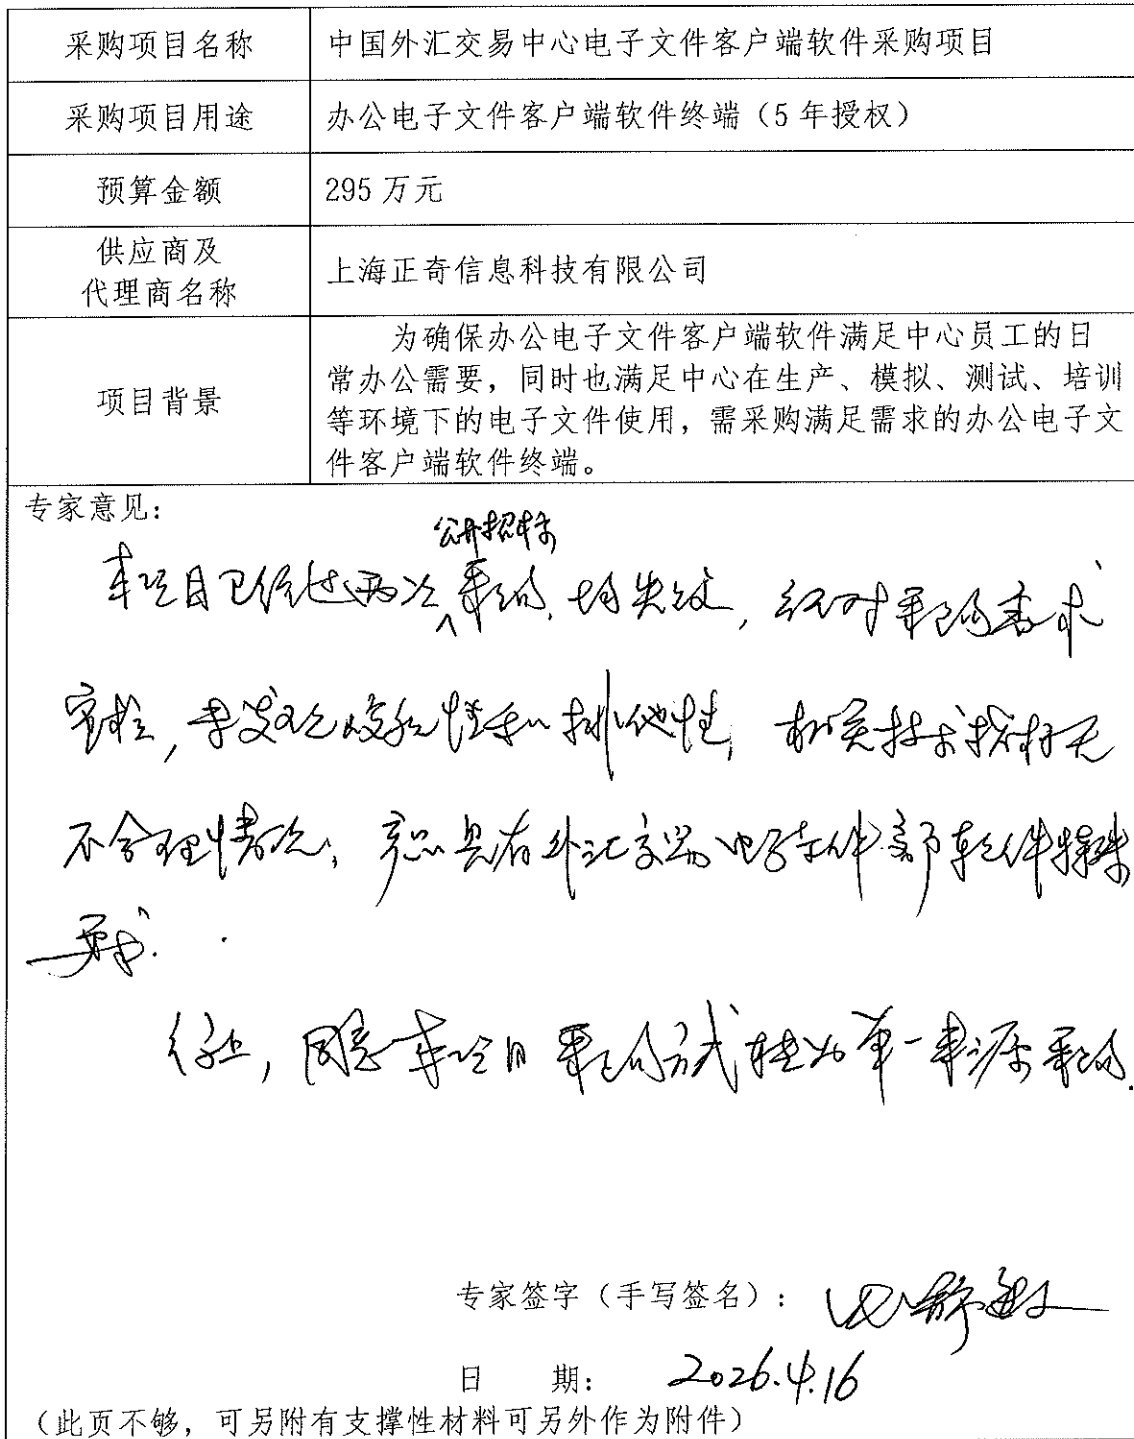 采购项目名称 中国外汇交易中心电子文件客户端软件采购项目
采购项目用途 办公电子文件客户端软件终端（5年授权）
预算金额 295万元
供应商及
代理商名称 上海正奇信息科技有限公司
项目背景 为确保办公电子文件客户端软件满足中心员工的日
常办公需要，同时也满足中心在生产、模拟、测试、培训
等环境下的电子文件使用，需采购满足需求的办公电子文
件客户端软件终端。
专家意见：
公开招标
本项目已经过两次采购，均失败，经对采购需求
审核，未发现歧视性和排他性，相关技术指标无
不合理情况；产品具有外汇交易电子文件 软件特殊
要求.
综上，同意本项目采购方式转为单一来源采购.
专家签字（手写签名）：
日 期： 2026.4.16
（此页不够，可另附有支撑性材料可另外作为附件）